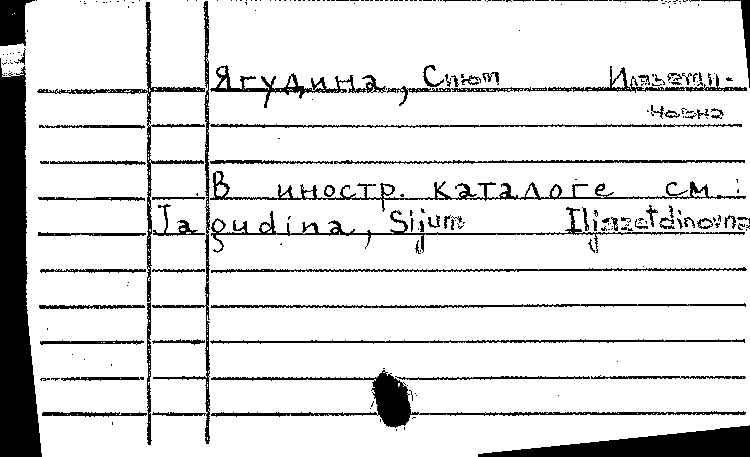 Ягудина, Сиюм
В иностр. каталоге см.:
Jagudina, Sijum Iljazetdinovna